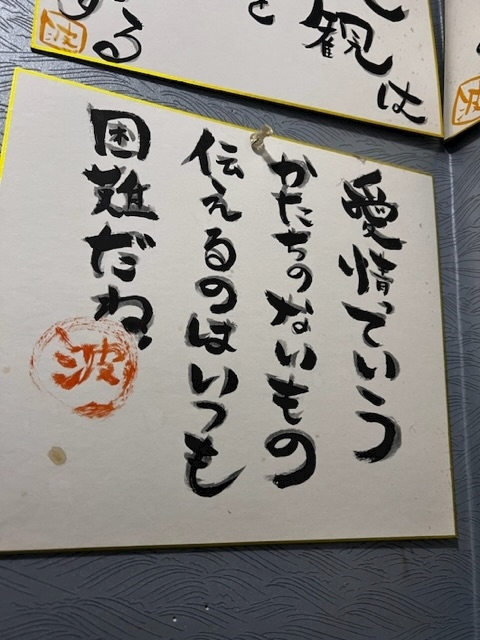 愛情っていう
かたちのないもの
伝えるのはいつも
困難だね.
波
観は
と
する
波